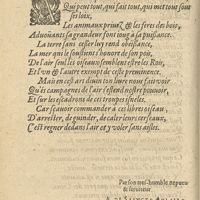 Qui peut tout, qui fait tout, qui met tout sous
ses loix,
Les animaux privez & les feres des bois,
Aduoüants sa grandeur sont tous à sa puissance.
La terre sans cesser luy rend obeissance,
La mer ores le soustient honore de son pois,
De l'air seul les oiseaux semblent estre les Rois,
Et l'vn & l'autre exempts de ceste preeminence.
Mais en ces arts d'vn ton liure nous fait voir
Qu'es campagnes de l'air s'estend nostre pouuoir,
Et sur les esquadrons de ces troupes isnelles.
Car sçauoir commander a ces libres oiseau
D'arrester, de guinder, de caler leurs cerceaux,
C'est regner dedans l'air et y voler sans aisles.
Par son tres-humble nepueu
& seruiteur